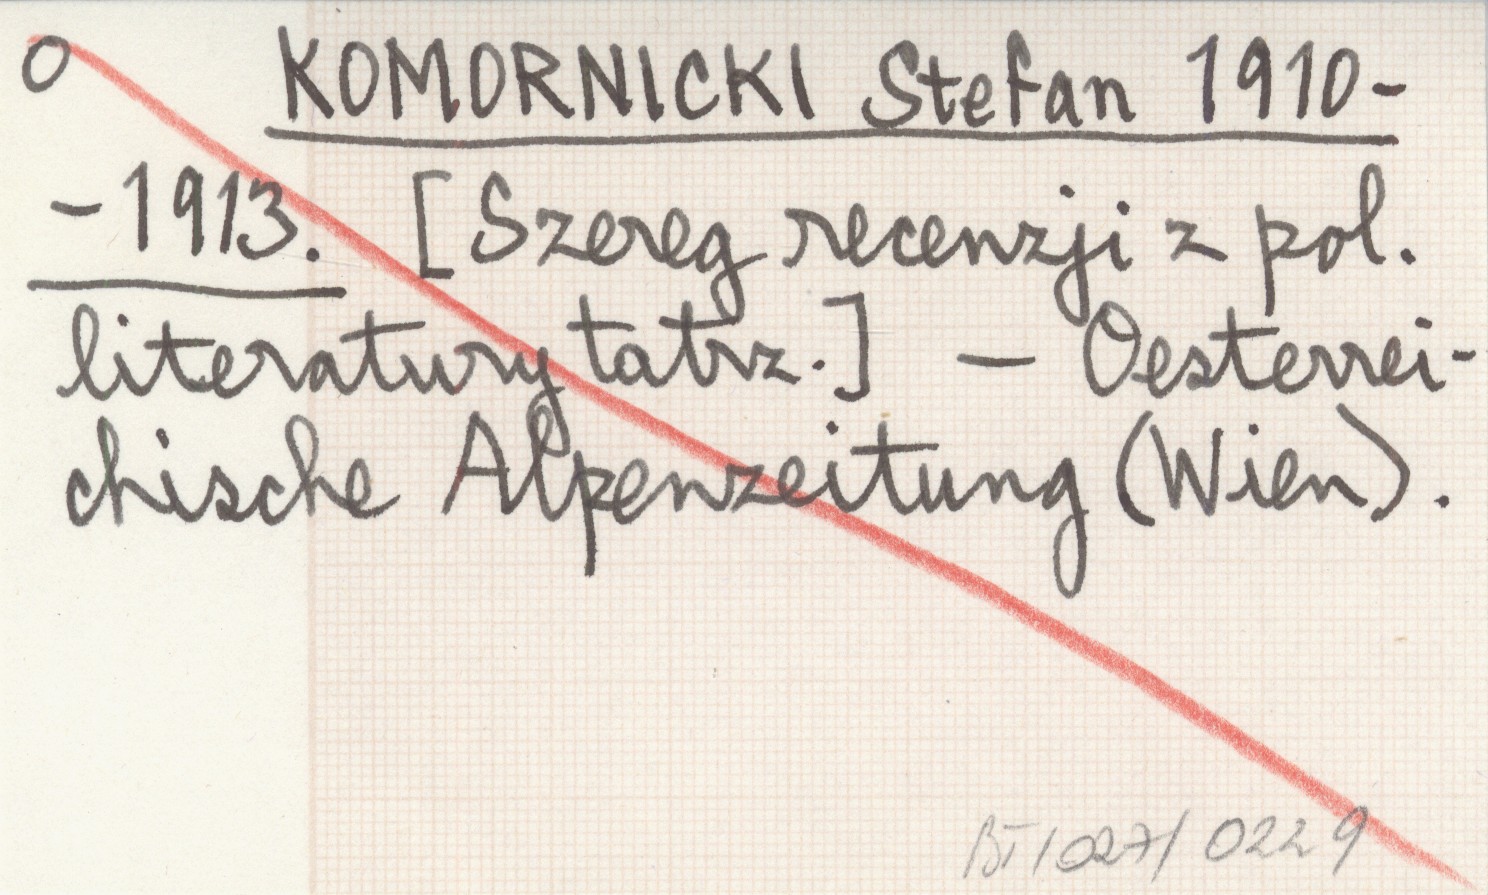 O KOMORNICKI Stefan 1910-
-1913. [Szereg recenzji z pol.
literatury tatrz.] — Oesterrei-
chische Alpenzeitung (Wien).
BT/027/0229